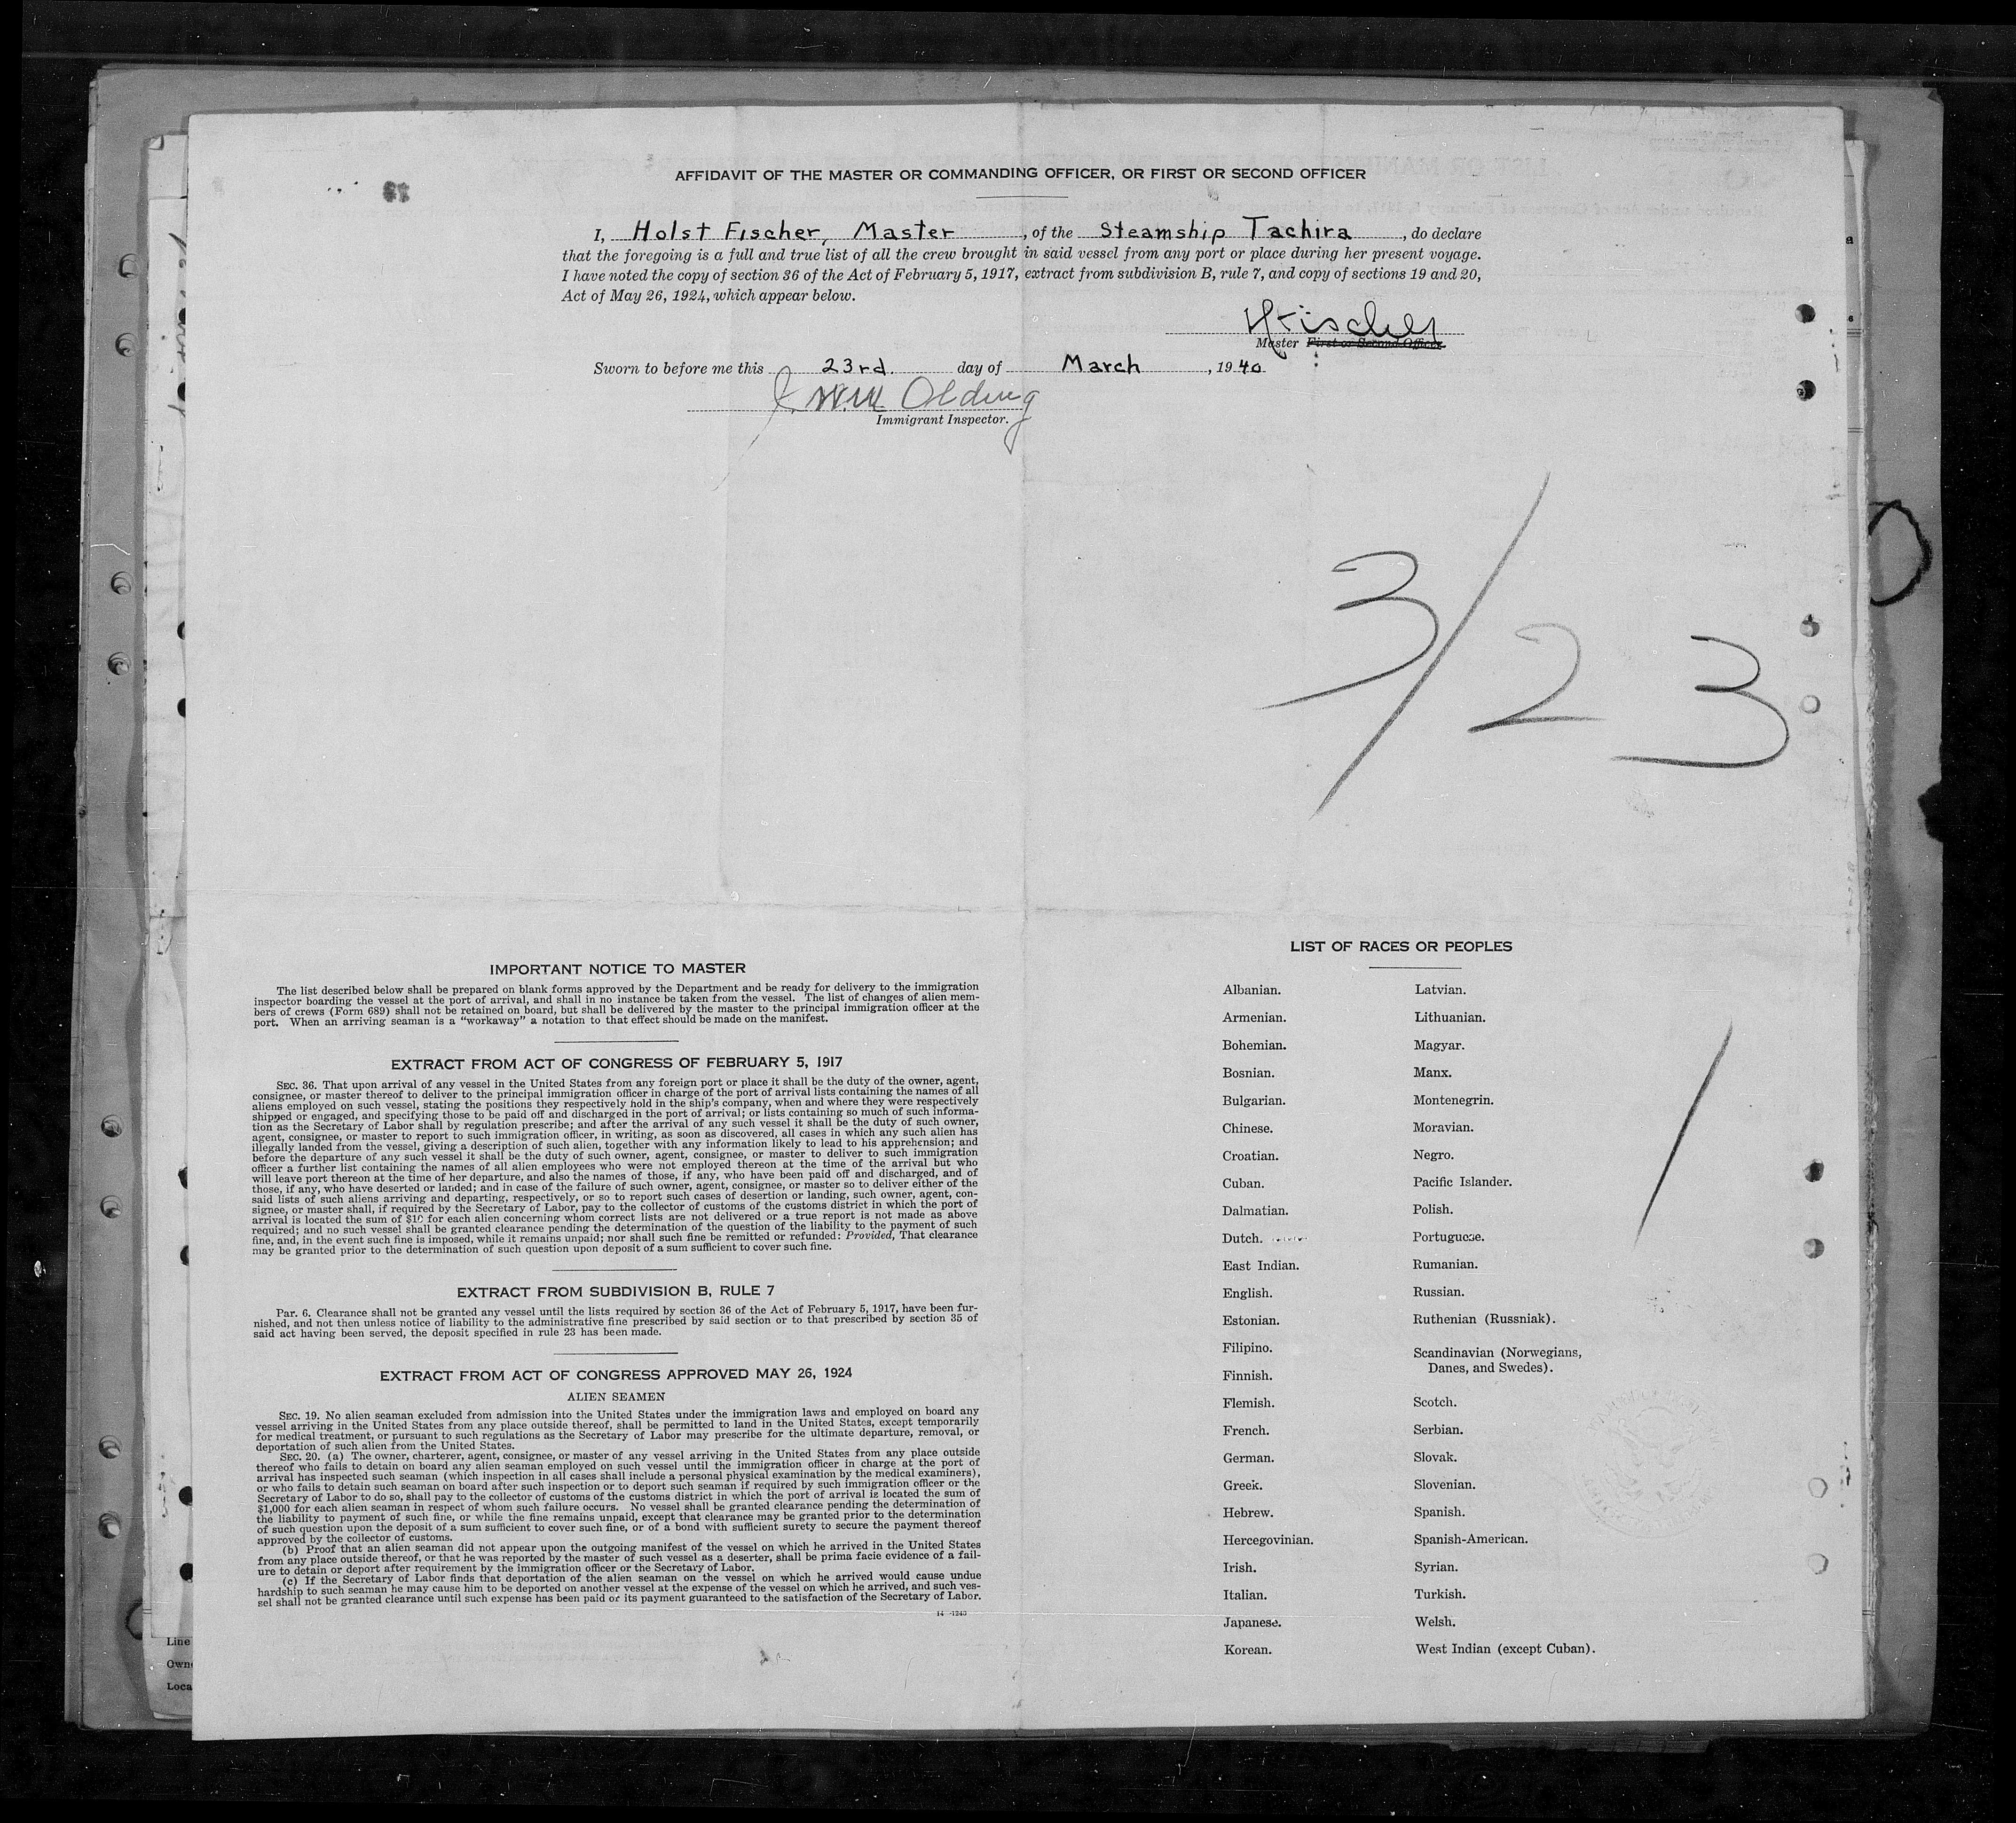 AFFIDAVIT OF THE MASTER OR COMMANDING OFFICER, OR FIRST OR SECOND OFFICER
I, Holst Fischer, Master, of the Steamship Tachira, do declare
that the foregoing is a full and true list of all the crew brought in said vessel from any port or place during her present voyage.
I have noted the copy of section 36 of the Act of February 5, 1917, extract from subdivision B, rule 7, and copy of sections 19 and 20,
Act of May 26, 1924, which appear below.
HFischer
Master First or Second Officer.
Sworn to before me this 23rd. day of March, 1940
Olding
Immigrant Inspector.
3/23
IMPORTANT NOTICE TO MASTER
The list described below shall be prepared on blank forms approved by the Department and be ready for delivery to the immigration
inspector boarding the vessel at the port of arrival, and shall in no instance be taken from the vessel. The list of changes of alien mem-
bers of crews (Form 689) shall not be retained on board, but shall be delivered by the master to the principal immigration officer at the
port. When an arriving seaman is a "workaway" a notation to that effect should be made on the manifest.
EXTRACT FROM ACT OF CONGRESS OF FEBRUARY 5, 1917
SEC. 36. That upon arrival of any vessel in the United States from any foreign port or place it shall be the duty of the owner, agent,
consignee, or master thereof to deliver to the principal immigration officer in charge of the port of arrival lists containing the names of all
aliens employed on such vessel, stating the positions they respectively hold in the ship's company, when and where they were respectively
shipped or engaged, and specifying those to be paid off and discharged in the port of arrival; or lists containing so much of such informa-
tion as the Secretary of Labor shall by regulation prescribe; and after the arrival of any such vessel it shall be the duty of such owner,
agent, consignee, or master to report to such immigration officer, in writing, as soon as discovered, all cases in which any such alien has
illegally landed from the vessel, giving a description of such alien, together with any information likely to lead to his apprehension; and
before the departure of any such vessel it shall be the duty of such owner, agent, consignee, or master to deliver to such immigration
officer a further list containing the names of all alien employees who were not employed thereon at the time of the arrival but who
will leave port thereon at the time of her departure, and also the names of those, if any, who have been paid off and discharged, and of
those, if any, who have deserted or landed; and in case of the failure of such owner, agent, consignee, or master so to deliver either of the
said lists of such aliens arriving and departing, respectively, or so to report such cases of desertion or landing, such owner, agent, con-
signee, or master shall, if required by the Secretary of Labor, pay to the collector of customs of the customs district in which the port of
arrival is located the sum of $10 for each alien concerning whom correct lists are not delivered or a true report is not made as above
required; and no such vessel shall be granted clearance pending the determination of the question of the liability to the payment of such
fine, and, in the event such fine is imposed, while it remains unpaid; nor shall such fine be remitted or refunded: Provided, That clearance
may be granted prior to the determination of such question upon deposit of a sum sufficient to cover such fine.
EXTRACT FROM SUBDIVISION B, RULE 7
Par. 6. Clearance shall not be granted any vessel until the lists required by section 36 of the Act of February 5, 1917, have been fur-
nished, and not then unless notice of liability to the administrative fine prescribed by said section or to that prescribed by section 35 of
said act having been served, the deposit specified in rule 23 has been made.
EXTRACT FROM ACT OF CONGRESS APPROVED MAY 26, 1924
ALIEN SEAMEN
SEC. 19. No alien seaman excluded from admission into the United States under the immigration laws and employed on board any
vessel arriving in the United States from any place outside thereof, shall be permitted to land in the United States, except temporarily
for medical treatment, or pursuant to such regulations as the Secretary of Labor may prescribe for the ultimate departure, removal, or
deportation of such alien from the United States.
SEC. 20. (a) The owner, charterer, agent, consignee, or master of any vessel arriving in the United States from any place outside
thereof who fails to detain on board any alien seaman employed on such vessel until the immigration officer in charge at the port of
arrival has inspected such seaman (which inspection in all cases shall include a personal physical examination by the medical examiners),
or who fails to detain such seaman on board after such inspection or to deport such seaman if required by such immigration officer or the
Secretary of Labor to do so, shall pay to the collector of customs of the customs district in which the port of arrival is located the sum of
$1,000 for each alien seaman in respect of whom such failure occurs. No vessel shall be granted clearance pending the determination of
the liability to payment of such fine, or while the fine remains unpaid, except that clearance may be granted prior to the determination
of such question upon the deposit of a sum sufficient to cover such fine, or of a bond with sufficient surety to secure the payment thereof
approved by the collector of customs.
(b) Proof that an alien seaman did not appear upon the outgoing manifest of the vessel on which he arrived in the United States
from any place outside thereof, or that he was reported by the master of such vessel as a deserter, shall be prima facie evidence of a fail-
ure to detain or deport after requirement by the immigration officer or the Secretary of Labor.
(c) If the Secretary of Labor finds that deportation of the alien seaman on the vessel on which he arrived would cause undue
hardship to such seaman he may cause him to be deported on another vessel at the expense of the vessel on which he arrived, and such ves-
sel shall not be granted clearance until such expense has been paid or its payment guaranteed to the satisfaction of the Secretary of Labor.
14-1243
LIST OF RACES OR PEOPLES
Albanian.
Armenian.
Bohemian.
Bosnian.
Bulgarian.
Chinese.
Croatian.
Cuban.
Dalmatian.
Dutch.
East Indian.
English.
Estonian.
Filipino.
Finnish.
Flemish.
French.
German.
Greek.
Hebrew.
Hercegovinian.
Irish.
Italian.
Japanese.
Korean.
Latvian.
Lithuanian.
Magyar.
Manx.
Montenegrin.
Moravian.
Negro.
Pacific Islander.
Polish.
Portuguese.
Rumanian.
Russian.
Ruthenian (Russniak).
Scandinavian (Norwegians,
Danes, and Swedes).
Scotch.
Serbian.
Slovak.
Slovenian.
Spanish.
Spanish-American.
Syrian.
Turkish.
Welsh.
West Indian (except Cuban).
Line
Own
Loca